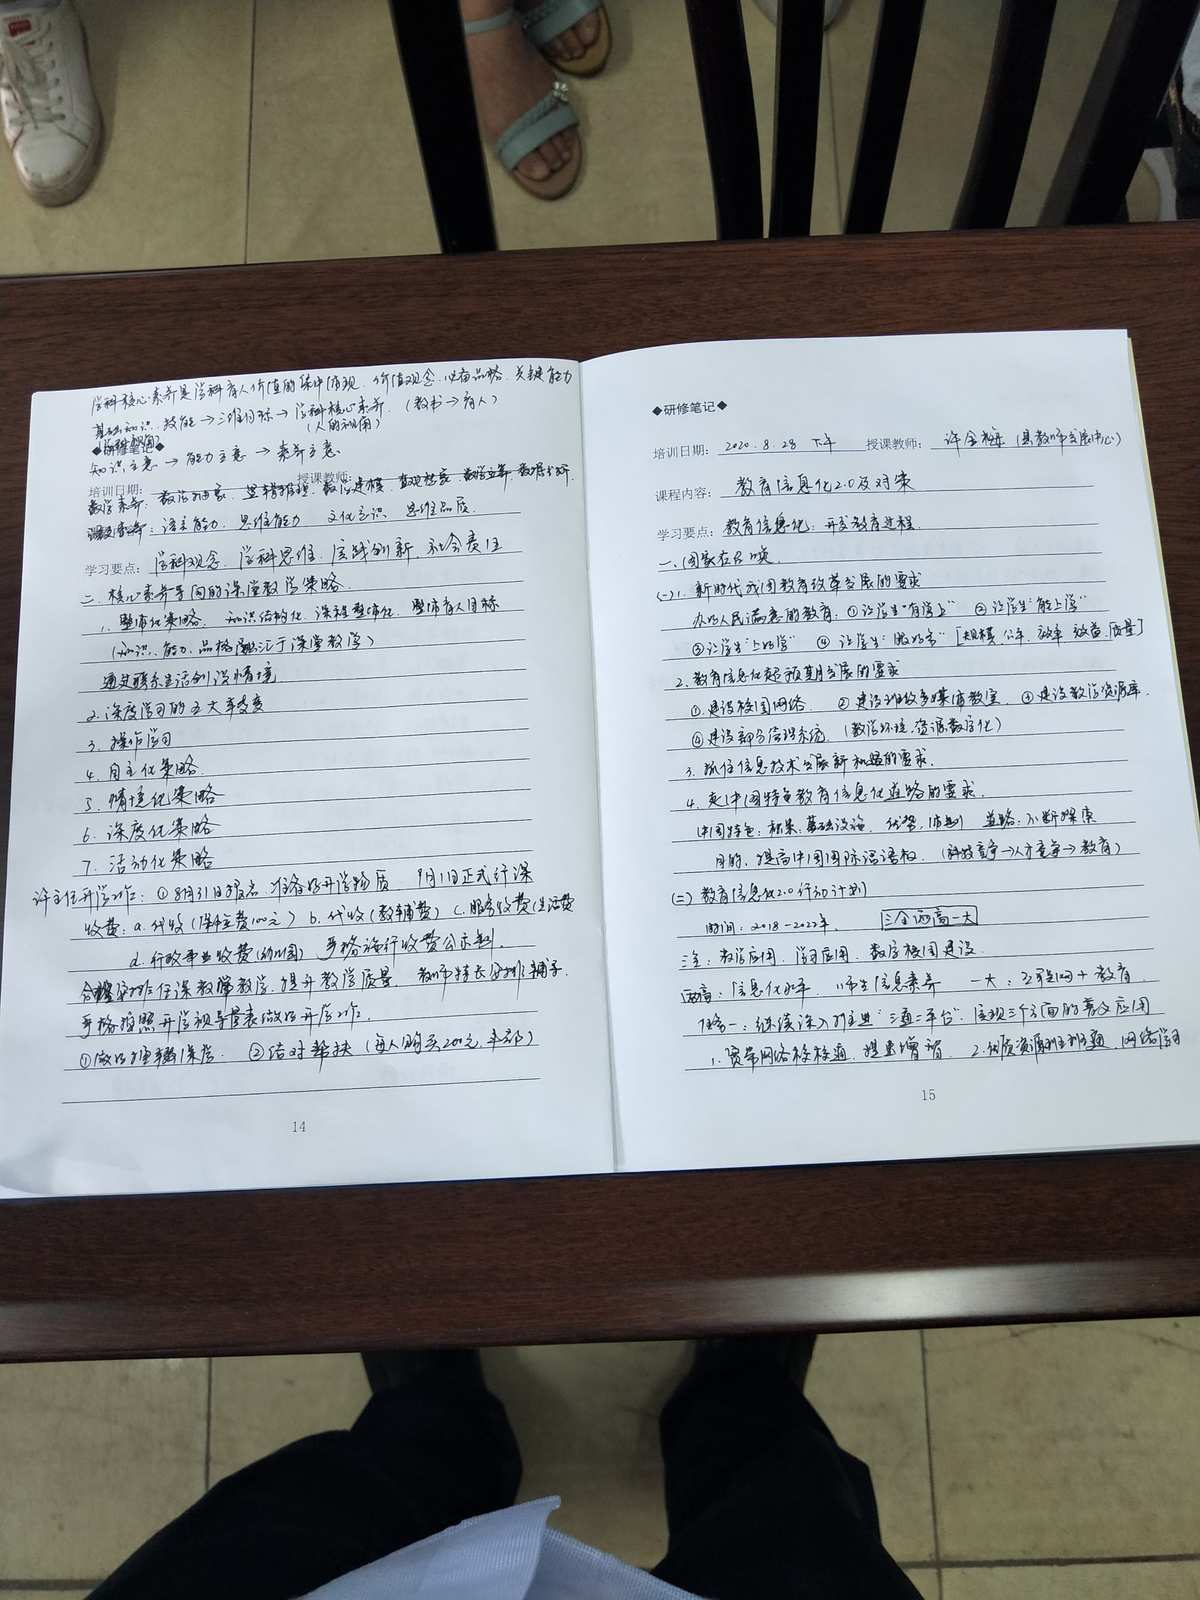 学科核心素养是学科育人价值的集中体现. 价值观念. 必备品格. 关键能力
基础知识. 技能→三维目标→学科核心素养. (教书→育人)
(学科视角) (人的视角)
◆研修笔记◆
知识主意→能力主意→素养主意
培训日期: 授课教师:
数学素养: 数学抽象. 逻辑推理. 数学建模. 直观想象. 数学运算. 数据分析.
语言能力. 思维能力 文化意识 思维品质.
学习要点: 学科观念. 学科思维. 实践创新. 社会责任
二. 核心素养导向的课堂教学策略.
1. 整体化策略. 知识结构化. 课程整体化. 整体育人目标
(知识、能力、品格汇于课堂教学)
通过联系生活创设情境
2. 深度学习的五大
3. 操作学习
4. 自主化策略.
5. 情境化策略
6. 深度化策略
7. 活动化策略
许主任开学工作: ①8月31日报名 准备好开学物质 9月1日正式行课
收费: a. 代收(保险费100元) b. 代收(教辅费) c. 服务收费(生活费
d. 行政事业收费(幼儿园) 严格施行收费公示制.
合理安排任课教师教学, 提升教学质量. 教师特长安排辅导.
严格按照开学视导量表做好开学工作.
①做好控辍保学. ②结对帮扶(每人购买200元
14
◆研修笔记◆
培训日期: 2020.8.28 下午 授课教师: 许全梅(县教师发展中心)
课程内容: 教育信息化2.0及对策
学习要点: 教育信息化: 开发教育进程.
一、国家在召唤.
(一)1. 新时代我国教育改革发展的要求
办好人民满意的教育: ①让学生“有学上” ②让学生“能上学”
③让学生“上好学” ④让学生“ [规模. 公平. 效率. 效益. 质量]
2. 教育信息化超预期发展的要求
①建设校园网络. ②建设班级多媒体教室. ③建设教学资源库.
④建设部分管理系统. (教学环境、资源数字化)
3. 抓住信息技术发展新机遇的要求.
4. 走中国特色教育信息化道路的要求.
中国特色: 标杆: 基础设施. 优势: 体制 道路: 不断探索
目的: 提高中国国际话语权. (科技竞争→人才竞争→教育)
(二) 教育信息化2.0行动计划
时间: 2018-2022年. 三全两高一大
三全: 教学应用. 学习应用. 数字校园建设.
两高: 信息化水平. 师生信息素养 一大: 互联网+教育.
任务一: 继续深入推进“三通二平台”. 实现三个方面的普及应用
1. 宽带网络校校通, 提速增智. 2. 优质资源班班通. 网络学习
15